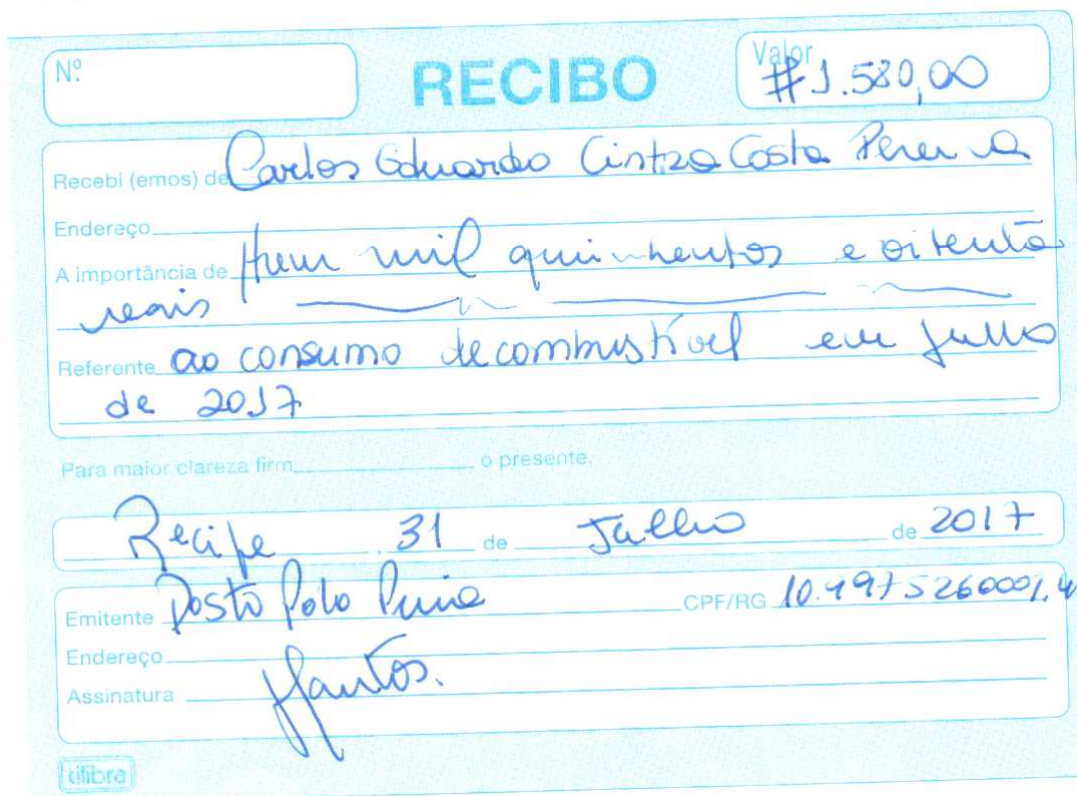 Nº
RECIBO
Valor
#1.580,00
Recebi (emos) de Carlos Eduardo Cintra Costa Pereira
Endereço
A importância de Hum mil quinhentos e oitenta
reais
Referente ao consumo de combustível em Julho
de 2017
Para maior clareza firm o presente.
Recife 31 de Julho de 2017
Emitente Posto Polo
CPF/RG
Endereço
Assinatura
tilibra